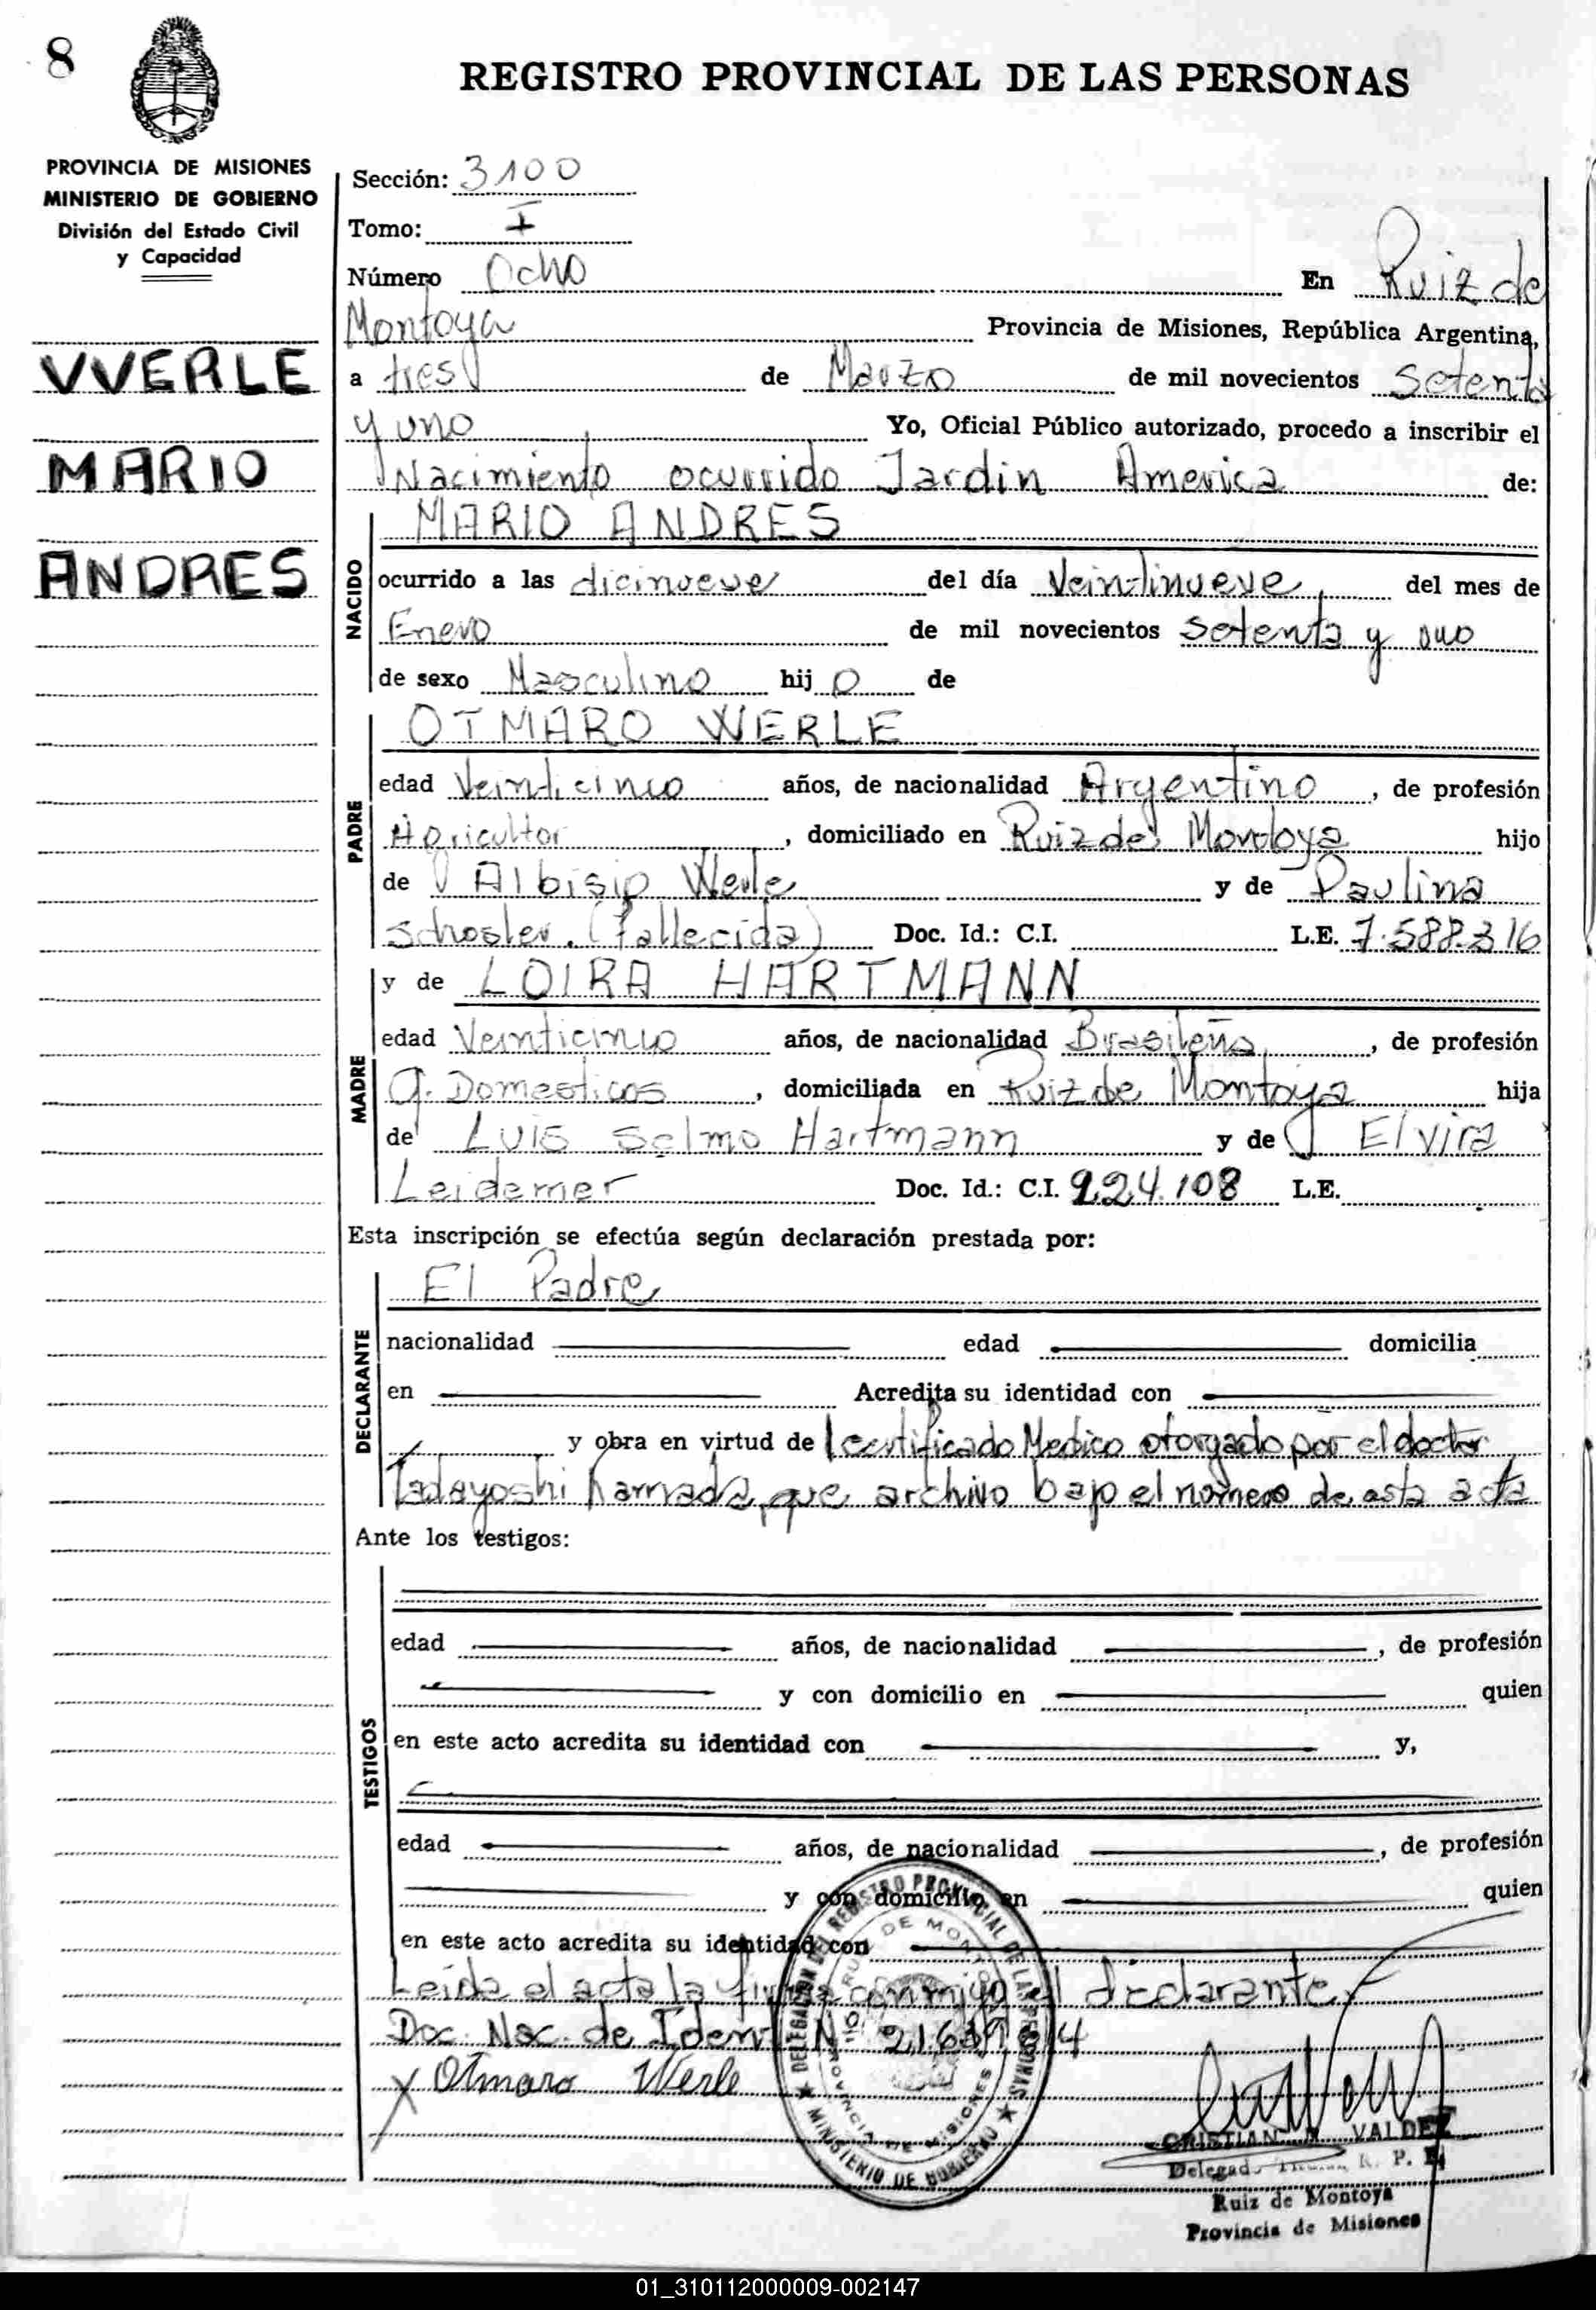 8
REGISTRO PROVINCIAL DE LAS PERSONAS
PROVINCIA DE MISIONES
MINISTERIO DE GOBIERNO
División del Estado Civil
y Capacidad
VVERLE
MARIO
ANDRES
Sección: 3100
Tomo: I
Número Ocho En Ruiz de
Montoya Provincia de Misiones, República Argentina,
a tres de Marzo de mil novecientos Setenta
y uno Yo, Oficial Público autorizado, procedo a inscribir el
Nacimiento ocurrido Jardin America de:
NACIDO
MARIO ANDRES
ocurrido a las dicinueve del día Veintinueve del mes de
Enero de mil novecientos Setenta y uno
de sexo Masculino hij o de
PADRE
OTMARO WERLE
edad Veinticinco años, de nacionalidad Argentino, de profesión
Agricultor, domiciliado en Ruiz de Montoya hijo
de Albisio Werle y de Paulina
Schosler. (Fallecida) Doc. Id.: C.I. L.E. 7.588.316
MADRE
y de LOIRA HARTMANN
edad Veinticinco años, de nacionalidad Brasileña, de profesión
Q. Domesticos, domiciliada en Ruiz de Montoya hija
de Luis Selmo Hartmann y de Elvira
Leidemer Doc. Id.: C.I. 224.108 L.E.
Esta inscripción se efectúa según declaración prestada por:
DECLARANTE
El Padre
nacionalidad edad domicilia
en Acredita su identidad con
y obra en virtud de certificado Medico otorgado por el doctor
Tadayoshi Kamada, que archivo bajo el número de esta acta
Ante los testigos:
TESTIGOS
edad años, de nacionalidad , de profesión
y con domicilio en quien
en este acto acredita su identidad con y,
edad años, de nacionalidad , de profesión
y con domicilio en quien
en este acto acredita su identidad con
Leida el acta la firma conmigo el declarante
Doc. Nac. de Ident. N 21.639
Otmaro Werle
DELEGACION DEL REGISTRO PROVINCIAL DE LAS PERSONAS
MINISTERIO DE GOBIERNO
RUIZ DE MONTOYA
PROVINCIA DE MISIONES
CRISTIAN VALDEZ
Delegado R. P.
Ruiz de Montoya
Provincia de Misiones
01_310112000009-002147